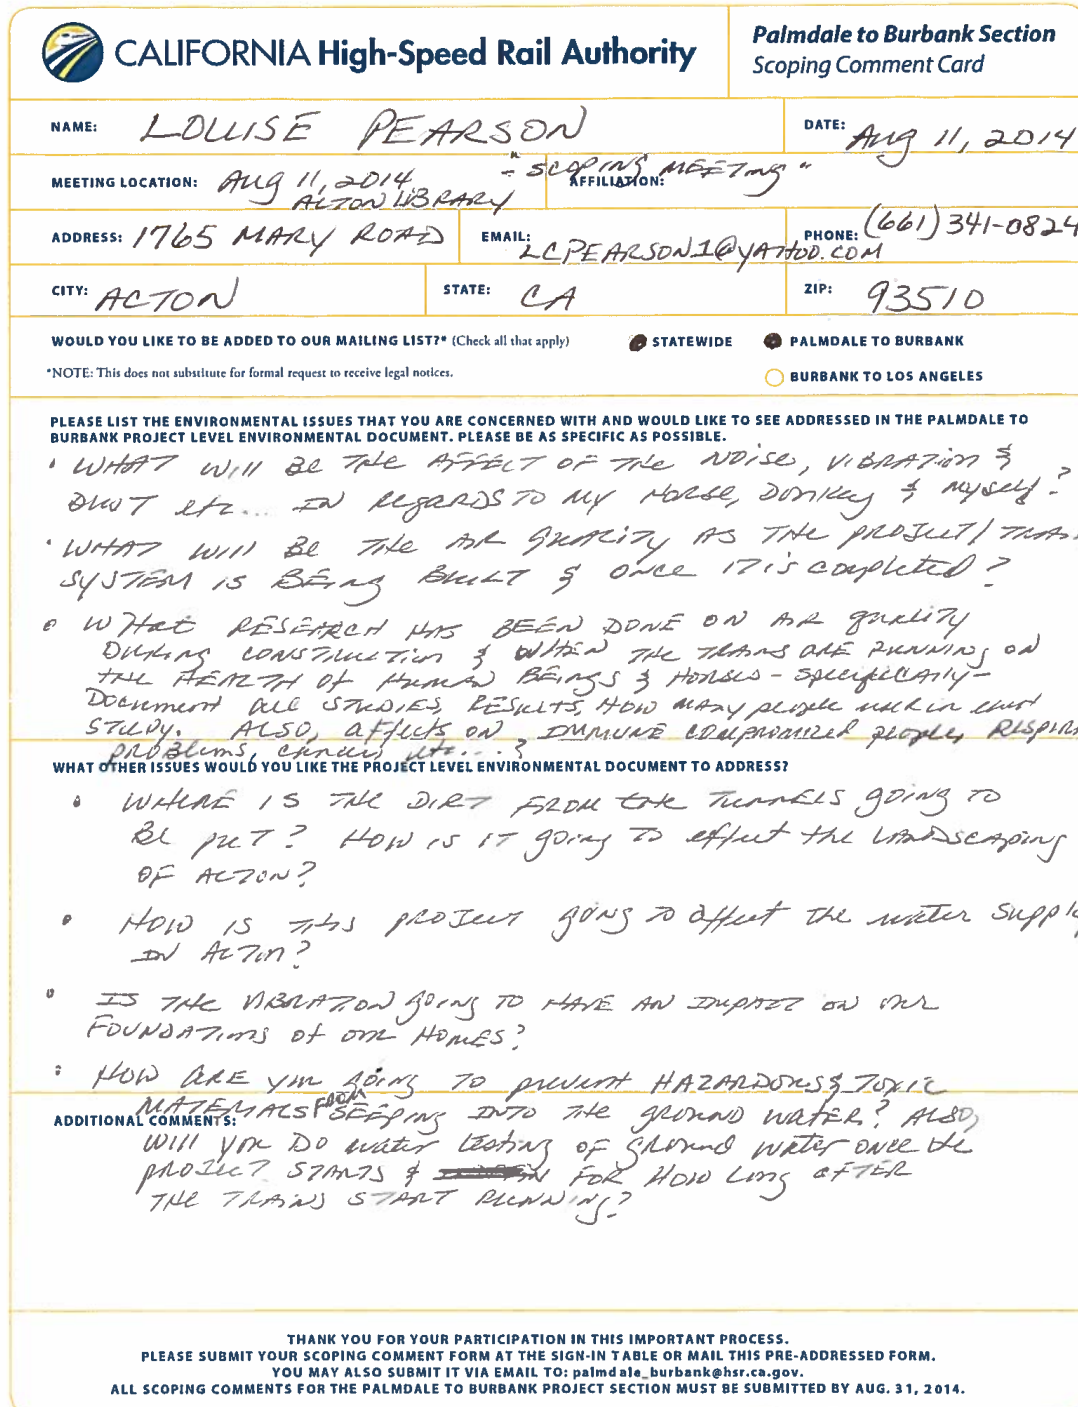 CALIFORNIA High-Speed Rail Authority
Palmdale to Burbank Section
Scoping Comment Card
NAME: LOUISE PEARSON
DATE: Aug 11, 2014
MEETING LOCATION: Aug 11, 2014 - "SCOPING MEETING"
ACTON LIBRARY
AFFILIATION:
ADDRESS: 1765 MARY ROAD
EMAIL: LCPEARSON1@YAHOO.COM
PHONE: (661) 341-0824
CITY: ACTON
STATE: CA
ZIP: 93510
WOULD YOU LIKE TO BE ADDED TO OUR MAILING LIST?* (Check all that apply)
STATEWIDE
PALMDALE TO BURBANK
*NOTE: This does not substitute for formal request to receive legal notices.
BURBANK TO LOS ANGELES
PLEASE LIST THE ENVIRONMENTAL ISSUES THAT YOU ARE CONCERNED WITH AND WOULD LIKE TO SEE ADDRESSED IN THE PALMDALE TO
BURBANK PROJECT LEVEL ENVIRONMENTAL DOCUMENT. PLEASE BE AS SPECIFIC AS POSSIBLE.
• WHAT will BE THE AFFECT OF THE NOISE, VIBRATION &
DUST etc... IN RegARDS TO My HORSE, DONKey & Myself?
• WHAT will BE THE AIR QUALITY AS THE PROJECT/
SYSTEM IS BEing BUILT & ONCE IT is completed?
• WHat RESEARCH HAS BEEN DONE ON AIR QUALITY
DURING CONSTRUCTION & WHEN THE TRAINS ARE RUNNING ON
THE HEALTH OF HUMAN BEINGS & HORSES - SPECIFICALLY -
Document ALL STUDIES, RESULTS, HOW MANY people used in each
STUDY. ALSO, affects ON IMMUNE COMPROMIZED people,
PROBLEMS, cancer, etc...?
WHAT OTHER ISSUES WOULD YOU LIKE THE PROJECT LEVEL ENVIRONMENTAL DOCUMENT TO ADDRESS?
• WHERE IS THE DIRT FROM the TUNNELS going TO
BE put? HOW IS IT going TO effect the LANDSCAPING
OF ACTON?
• HOW IS THIS PROJECT going TO affect the water Supply
IN ACTON?
• IS THE VIBRATION going TO HAVE AN IMPACT ON OUR
FOUNDATIONS of our HOMES?
• HOW ARE you going TO prevent HAZARDOUS & TOXIC
MATERIALS FROM SEEPING INTO THE GROUND WATER? ALSO,
ADDITIONAL COMMENTS:
Will you DO water testing OF GROUND WATER once the
PROJECT STARTS & FOR HOW LONG AFTER
THE TRAINS START RUNNING?
THANK YOU FOR YOUR PARTICIPATION IN THIS IMPORTANT PROCESS.
PLEASE SUBMIT YOUR SCOPING COMMENT FORM AT THE SIGN-IN TABLE OR MAIL THIS PRE-ADDRESSED FORM.
YOU MAY ALSO SUBMIT IT VIA EMAIL TO: palmdale_burbank@hsr.ca.gov.
ALL SCOPING COMMENTS FOR THE PALMDALE TO BURBANK PROJECT SECTION MUST BE SUBMITTED BY AUG. 31, 2014.